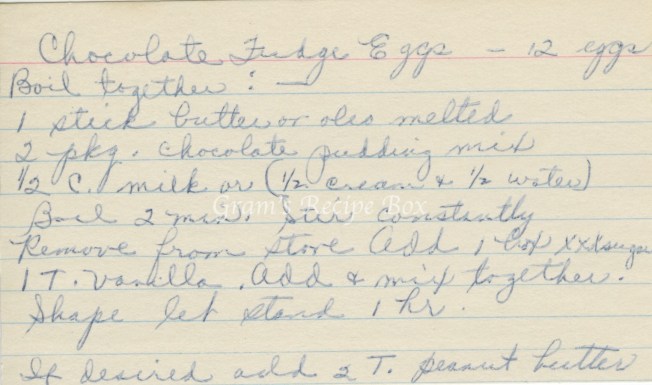 Chocolate Fudge Eggs - 12 eggs
Boil together : —
1 stick butter or oleo melted
2 pkg. chocolate pudding mix
1/2 C. milk or (1/2 cream & 1/2 water)
Gram's Recipe Box
Boil 2 min. Stir constantly
Remove from stove Add 1 box XXX sugar
1 T. vanilla . Add & mix together.
Shape let stand 1 hr.
If desired add 2 T. peanut butter